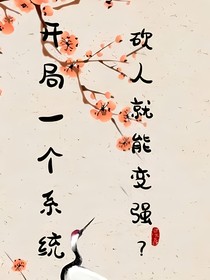 开局一个系统
砍人就能变强？